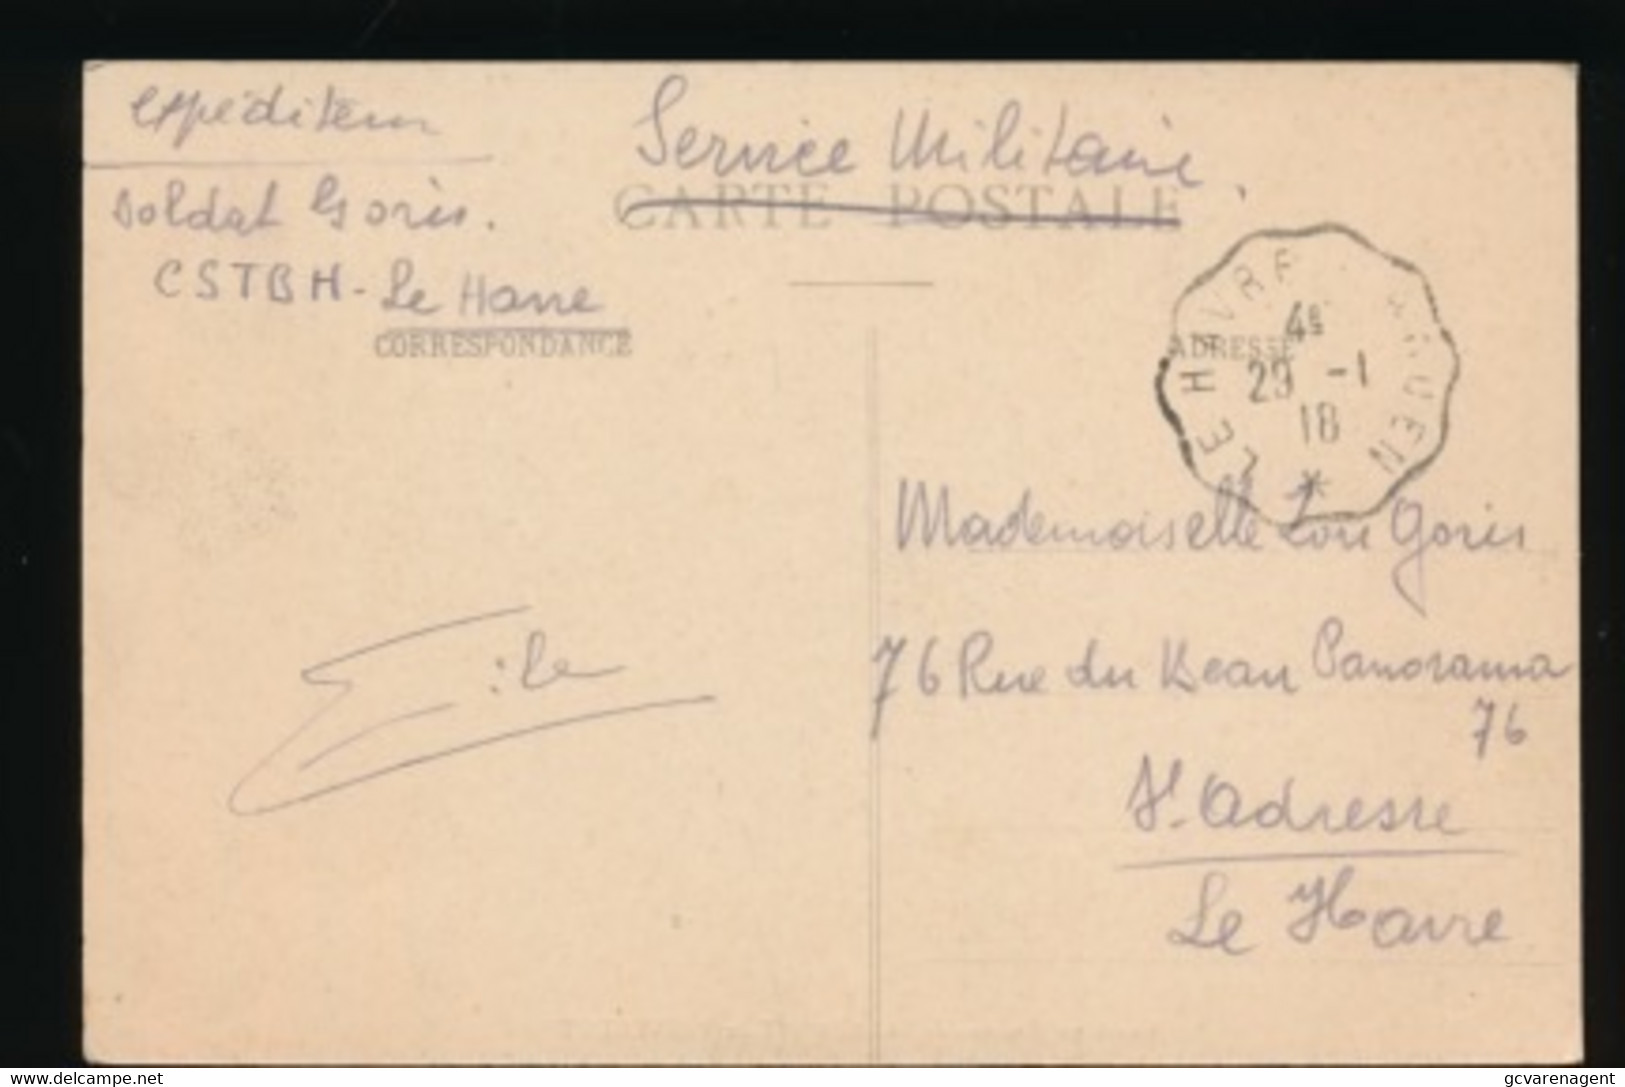 expéditeur
Service Militaire.
CARTE POSTALE
Soldat Goris.
CSTBH - Le Havre
CORRESPONDANCE
ADRESSE
LE HAVRE A ROUEN
4ᵉ
29 -1
18
Mademoiselle Goris
76 Rue du Beau Panorama
76
St. Adresse
Le Havre
www.delcampe.net
gcvarenagent